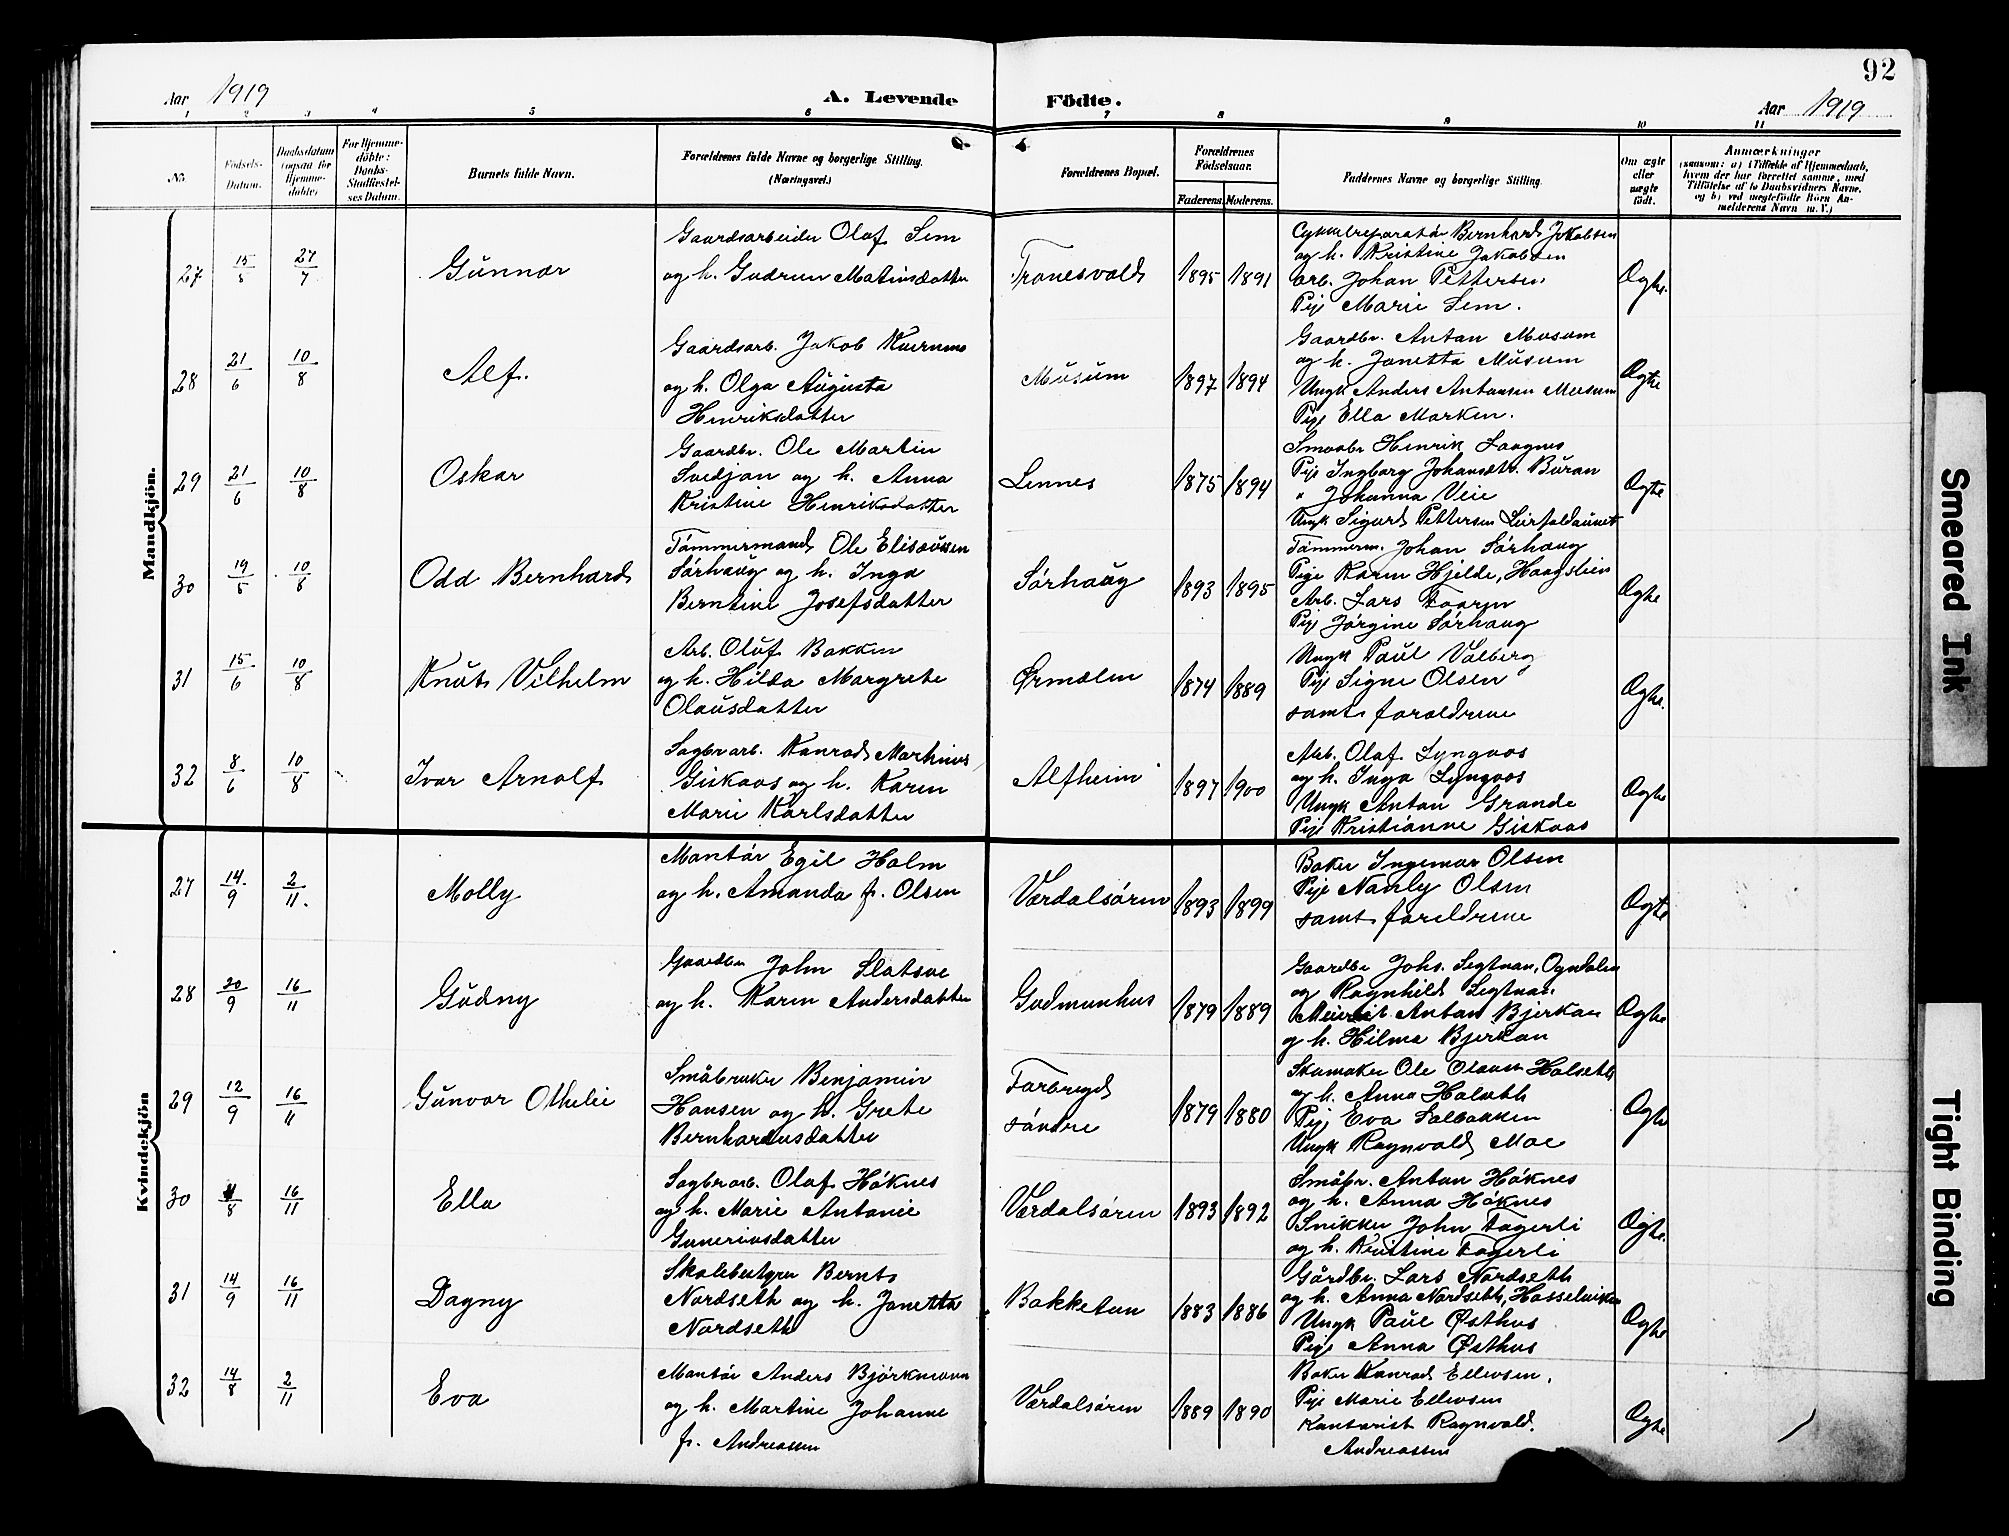 92
Aar 1919 A. Levende Födte. Aar 1919
1 2 3 4 5 6 7 8 9 10 11
No. Födsels-Datum. Daabsdatum (ogsaa for Hjemmedöbte) For Hjemmedöbte: Daabs-Stadfæstelses Datum. Barnets fulde Navn. Forældrenes fulde Navne og borgerlige Stilling. (Næringsvei.) Forældrenes Bopæl. Forældrenes Födselsaar. Faderens. Moderens. Faddernes Navne og borgerlige Stilling. Om ægte eller uægte födt. Anmærkninger (saasom: a) i Tilfælde af Hjemmedaab, hvem der har forrettet samme, med Tilföielse af to Daabsvidners Navne, og b) ved uægtefödte Börn Anmelderens Navn m. V.)
Mandkjön.
27 15/5 27/7 Gunnar
Gaardsarbeider Olaf Sem
og h. Gudrun Matinsdatter
Tronesvold 1895 1891
Cykkelreparatör Bernhard Jakobsen
og h. Kristine Jakobsen
Arb. Johan Pettersen
Pije Marie Sem.
Ægte.
28 21/6 10/8 Alf.
Gaardsarb. Jakob Kvernmo
og h. Olga Augusta
Henriksdatter
Musum 1897 1894
Gaardbr. Anton Musum
og h. Janetta Musum
Ungk Anders Antonsen Musum
Pije Ella Marken.
Ægte
29 21/6 10/8 Oskar
Gaardbr. Ole Martin
Svedjan og h. Anna
Kristine Henriksdatter
Lennes 1875 1894
Smaabr Henrik Langnes
Pije Ingborg Johansdtt. Buran
" Johanna Veie
Ungk Sigurd Pettersen Leirfaldaunet
Ægte
30 19/5 10/8 Odd Bernhard
Tömmermand Ole Eliseussen
Sörhaug og h. Inga
Berntine Josefsdatter
Sörhaug 1893 1895
Tömmerm. Johan Sörhaug
Pige Karen Hjelde,
Arb. Lars
Pije Jörgine Sörhaug
Ægte
31 15/6 10/8 Knut Vilhelm
Arb. Oluf Bakken
og h. Hilda Margrete
Olausdatter
Ørmælen 1874 1889
Ungk Paul Valberg
Pije Signe Olsen
samt foreldrene
Ægte.
32 8/6 10/8 Ivar Arnolf
Sagbrarb. Konrad Marthinus
Giskaas og h. Karen
Marie Karlsdatter
Alfheim 1897 1900
Arb. Olaf Lyngaas
og h. Inga Lyngaas
Ungk Anton Grande
Pije Kristianne Giskaas
Ægte
Kvindekjön
27 14/9 2/11. Molly
Montör Egil Holm
og h. Amanda f. Olsen
Værdalsören 1893 1899
Baker Ingemar Olsen
Pije Nanly Olsen
samt foreldrene
Ægte
28 20/9 16/11 Gudny
Gaardbr John Slatsve
og h. Karen Andersdatter
Gudmunhus 1879 1889
Gaardbr Johs. Segtnan, Ogndalen
og Ragnhild Segtnan
Meierist Anton Bjerkan
og h. Hilma Bjerkan
Ægte
29 12/9 16/11 Gunvor Othelie
Småbruker Benjamin
Hansen og h. Grete
Bernhardusdatter
Forbregd
söndre
1879 1880
Skomaker Ole Olausen Halseth
og h. Anna Halseth
Pije Eva Salbakken
Ungk Ragnvald Moe
Ægte
30 /8 16/11 Ella
Sagbrarb. Olaf Höknes
og h. Marie Antonie
Guneriusdatter
Værdalsören 1893 1892
Småbr. Anton Höknes
og h. Anna Höknes
Snikker John Fagerli
og h. Kristine Fagerli
Ægte.
31 14/9 16/11 Dagny
Skolebestyrer Bernt
Nordseth og h. Janetta
Nordseth
Bakketun 1883 1886
Gårdbr. Lars Nordseth
og h. Anna Nordseth, Hasselviken
Ungk Paul Østhus
Pije Anna Østhus
Ægte
32 14/8 2/11 Eva
Montör Anders Björkmann
og h. Martine Johanne
f. Andreassen
Værdalsören 1889 1890
Baker Konrad Ellevsen.
Pije Marie Ellevsen
Kontorist Ragnvald.
Andreassen
Ægte
Smeared Ink
Tight Binding